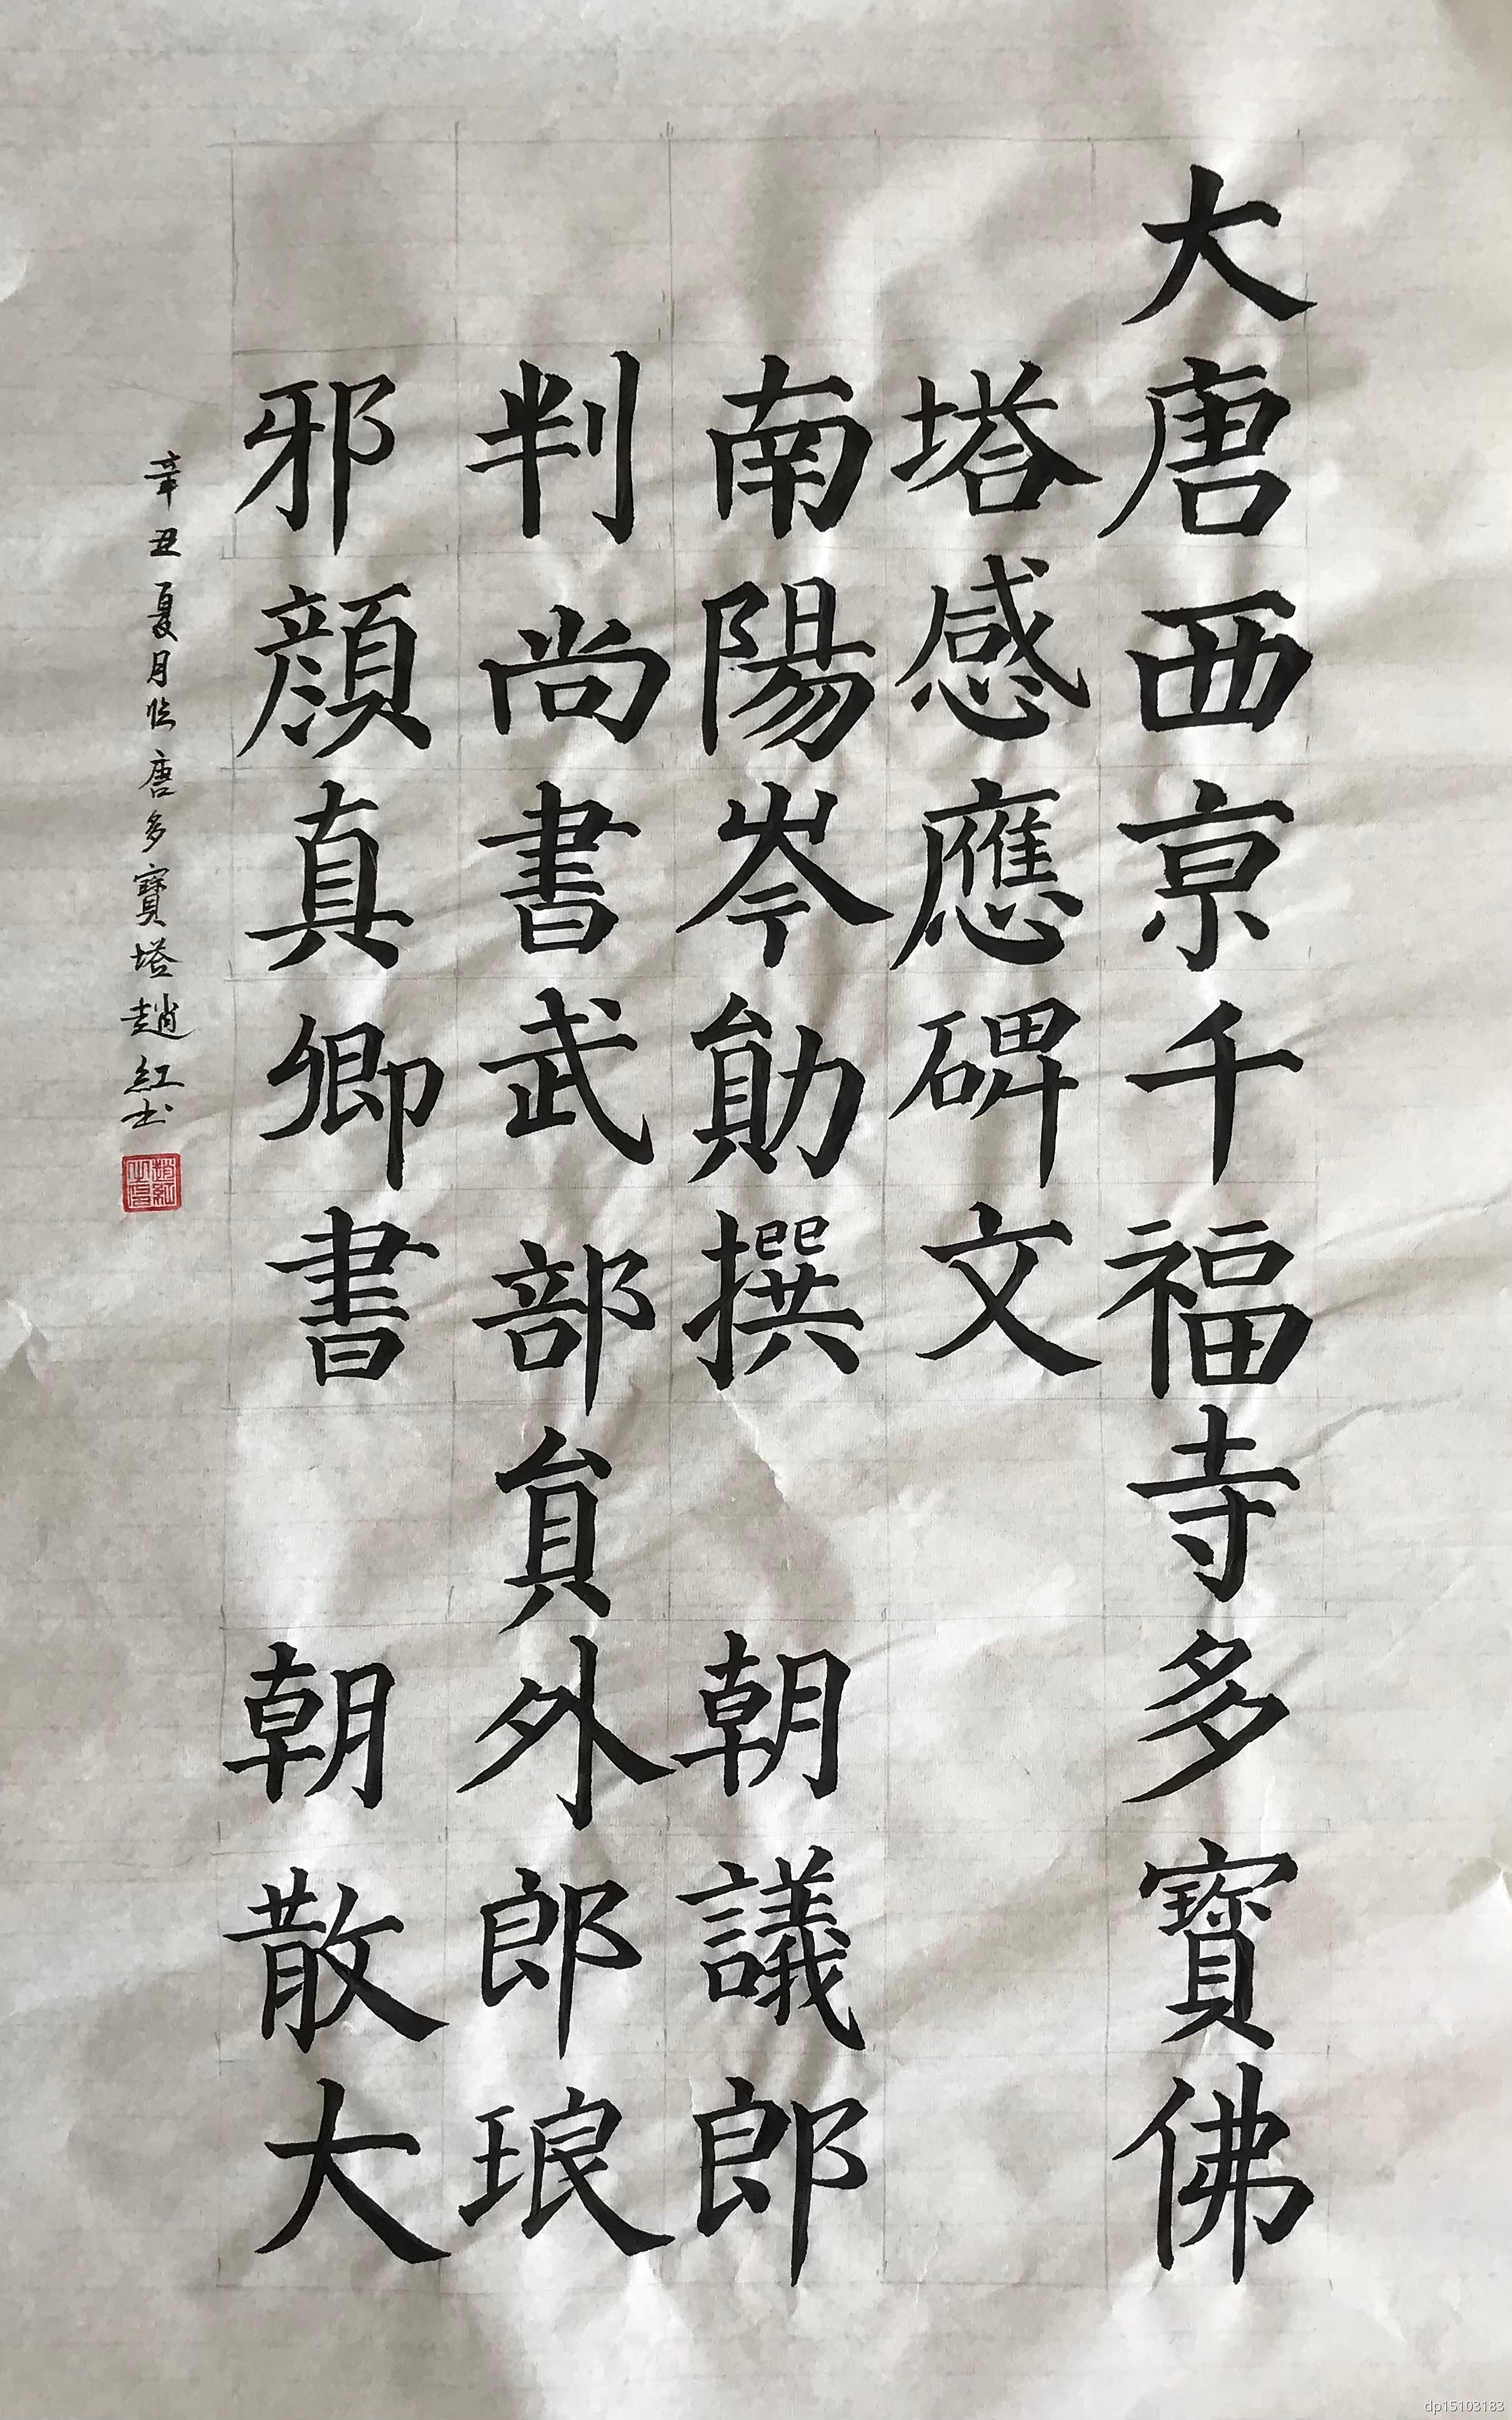 大唐西京千福寺多寶佛
塔感應碑文
南陽岑勛撰 朝議郎
判尚書武部員外郎琅
邪顏真卿書 朝散大
辛丑夏月临唐多寶塔趙紅书
dp15103183